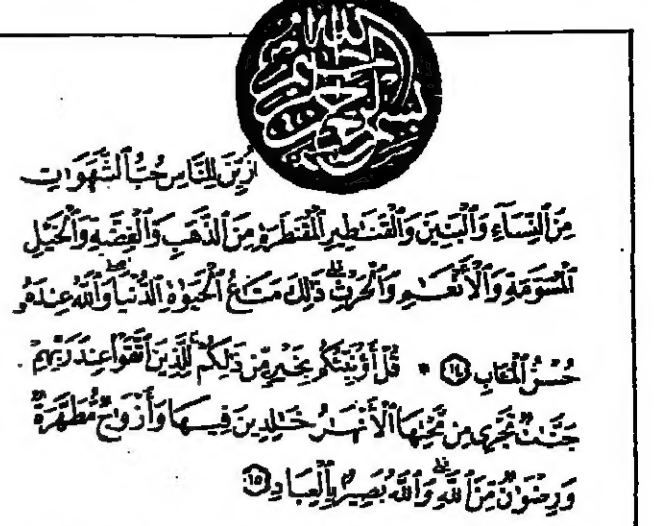 بسم الله الرحمن الرحيم
زُيِّنَ لِلنَّاسِ حُبُّ ٱلشَّهَوَٰتِ
مِنَ ٱلنِّسَآءِ وَٱلْبَنِينَ وَٱلْقَنَٰطِيرِ ٱلْمُقَنطَرَةِ مِنَ ٱلذَّهَبِ وَٱلْفِضَّةِ وَٱلْخَيْلِ
ٱلْمُسَوَّمَةِ وَٱلْأَنْعَٰمِ وَٱلْحَرْثِۗ ذَٰلِكَ مَتَٰعُ ٱلْحَيَوٰةِ ٱلدُّنْيَاۖ وَٱللَّهُ عِندَهُۥ
حُسْنُ ٱلْمَـَٔابِ ١٤ * قُلْ أَؤُنَبِّئُكُم بِخَيْرٍ مِّن ذَٰلِكُمْۚ لِلَّذِينَ ٱتَّقَوْا۟ عِندَ رَبِّهِمْ
جَنَّٰتٌ تَجْرِى مِن تَحْتِهَا ٱلْأَنْهَٰرُ خَٰلِدِينَ فِيهَا وَأَزْوَٰجٌ مُّطَهَّرَةٌ
وَرِضْوَٰنٌ مِّنَ ٱللَّهِۗ وَٱللَّهُ بَصِيرٌۢ بِٱلْعِبَادِ ١٥